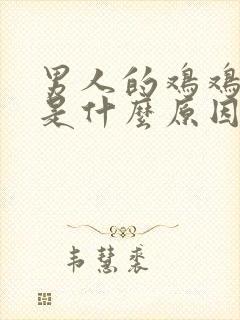 男人的鸡鸡
是什麼原因
韦慧裘